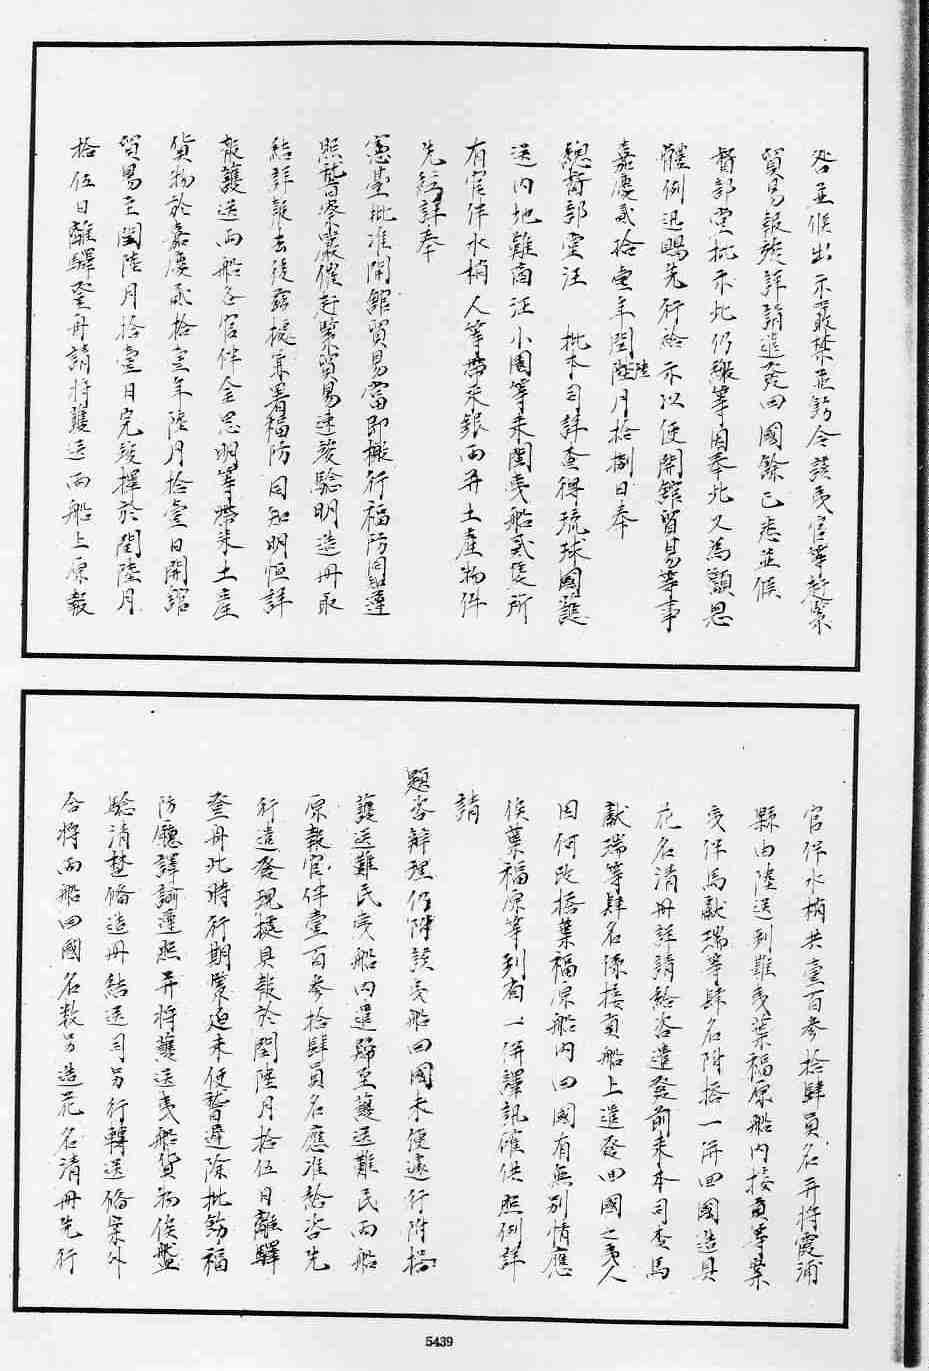 咨並候出示嚴禁並飭令該夷官等趕緊
貿易報竣詳請遣發回國餘已悉並候
督部堂批示此仍繳等因奉此又為籲恩
體例迅賜先行給示以便開館貿易等事
嘉慶貳拾壹年閏陸月拾捌日奉
總督部堂汪　批本司詳查得琉球國護
送內地難商汪小園等來閩夷船貳隻所
有官伴水梢人等帶來銀兩并土產物件
先經詳奉
憲臺批准開館貿易當即檄行福防同知遵
照督察嚴催趕緊貿易速竣驗明造冊取
結詳報去後茲據兼署福防同知明恒詳
報護送兩船各官伴金思明等帶來土產
貨物於嘉慶貳拾壹年陸月拾壹日開舘
貿易至閏陸月拾壹日完竣擇於閏陸月
拾伍日離驛登舟請將護送兩船上原報
官伴水梢共壹百參拾肆員名并將霞浦
縣由陸送到難夷葉福原船內接貢等業
夷伴馬獻瑞等肆名附搭一併回國造具
花名清冊詳請給咨遣發前來本司查馬
獻瑞等肆名係接貢船上遣發回國之夷人
因何改搭葉福原船內回國有無別情應
俟葉福原等到省一併譯訊確供照例詳
請
題咨辦理仍附該夷船回國未便遽行附搭
護送難民夷船內遣歸至護送難民兩船
原報官伴壹百參拾肆員名應准給咨先
行遣發現據具報於閏陸月拾伍日離驛
登舟此時行期緊迫未便暫遲除批飭福
防廳譯諭遵照并將護送夷船貨物俟盤
驗清楚俻造冊結送司另行轉送俻案外
合將兩船回國名數另造花名清冊先行
5439